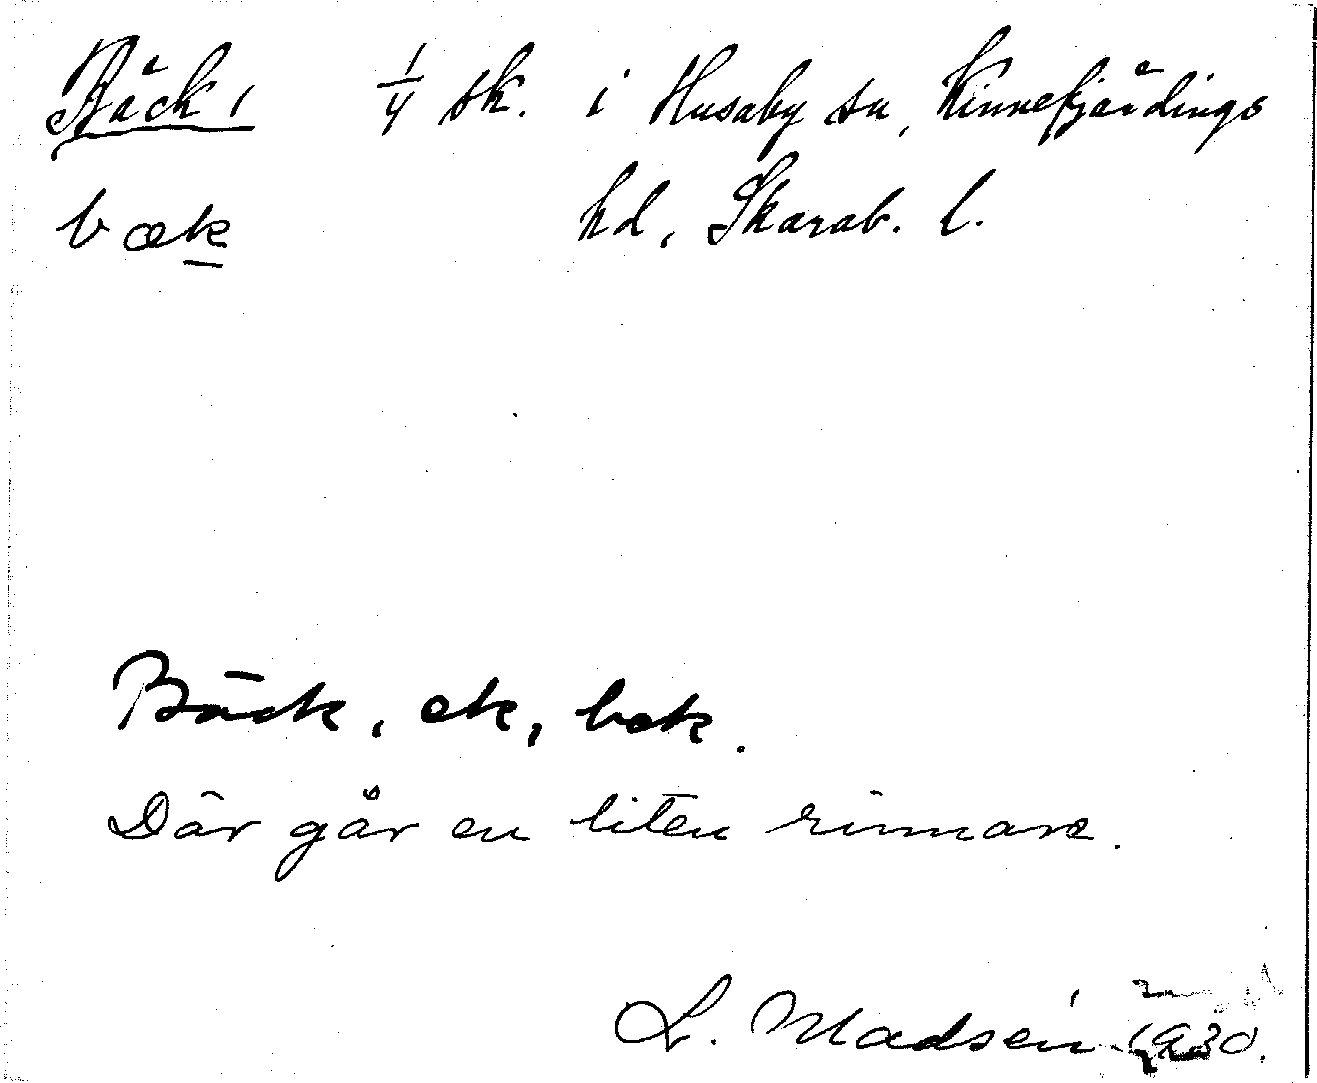 Bäck, 1/4 sk. i Husaby sn, Kinnefjärdings
bæk hd, Skarab. l.
Bäck, ek, bok.
Där går en liten rinnare.
L. Madsén 1930.